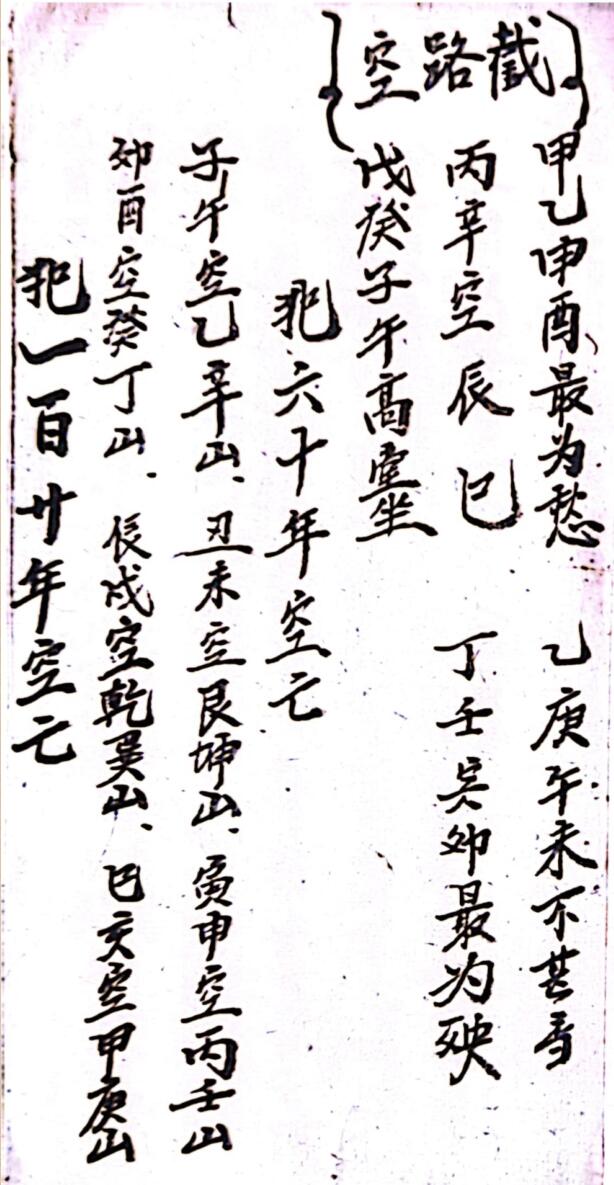 截路空
甲乙申酉最为愁 乙庚午未不甚
丙辛空辰巳 丁壬寅卯最为殃
戊癸子午高堂坐
犯六十年空亡
子午空乙辛山、丑未空艮坤山、寅申空丙壬山
卯酉空癸丁山、辰戌空乾巽山、巳亥空甲庚山
犯一百廿年空亡